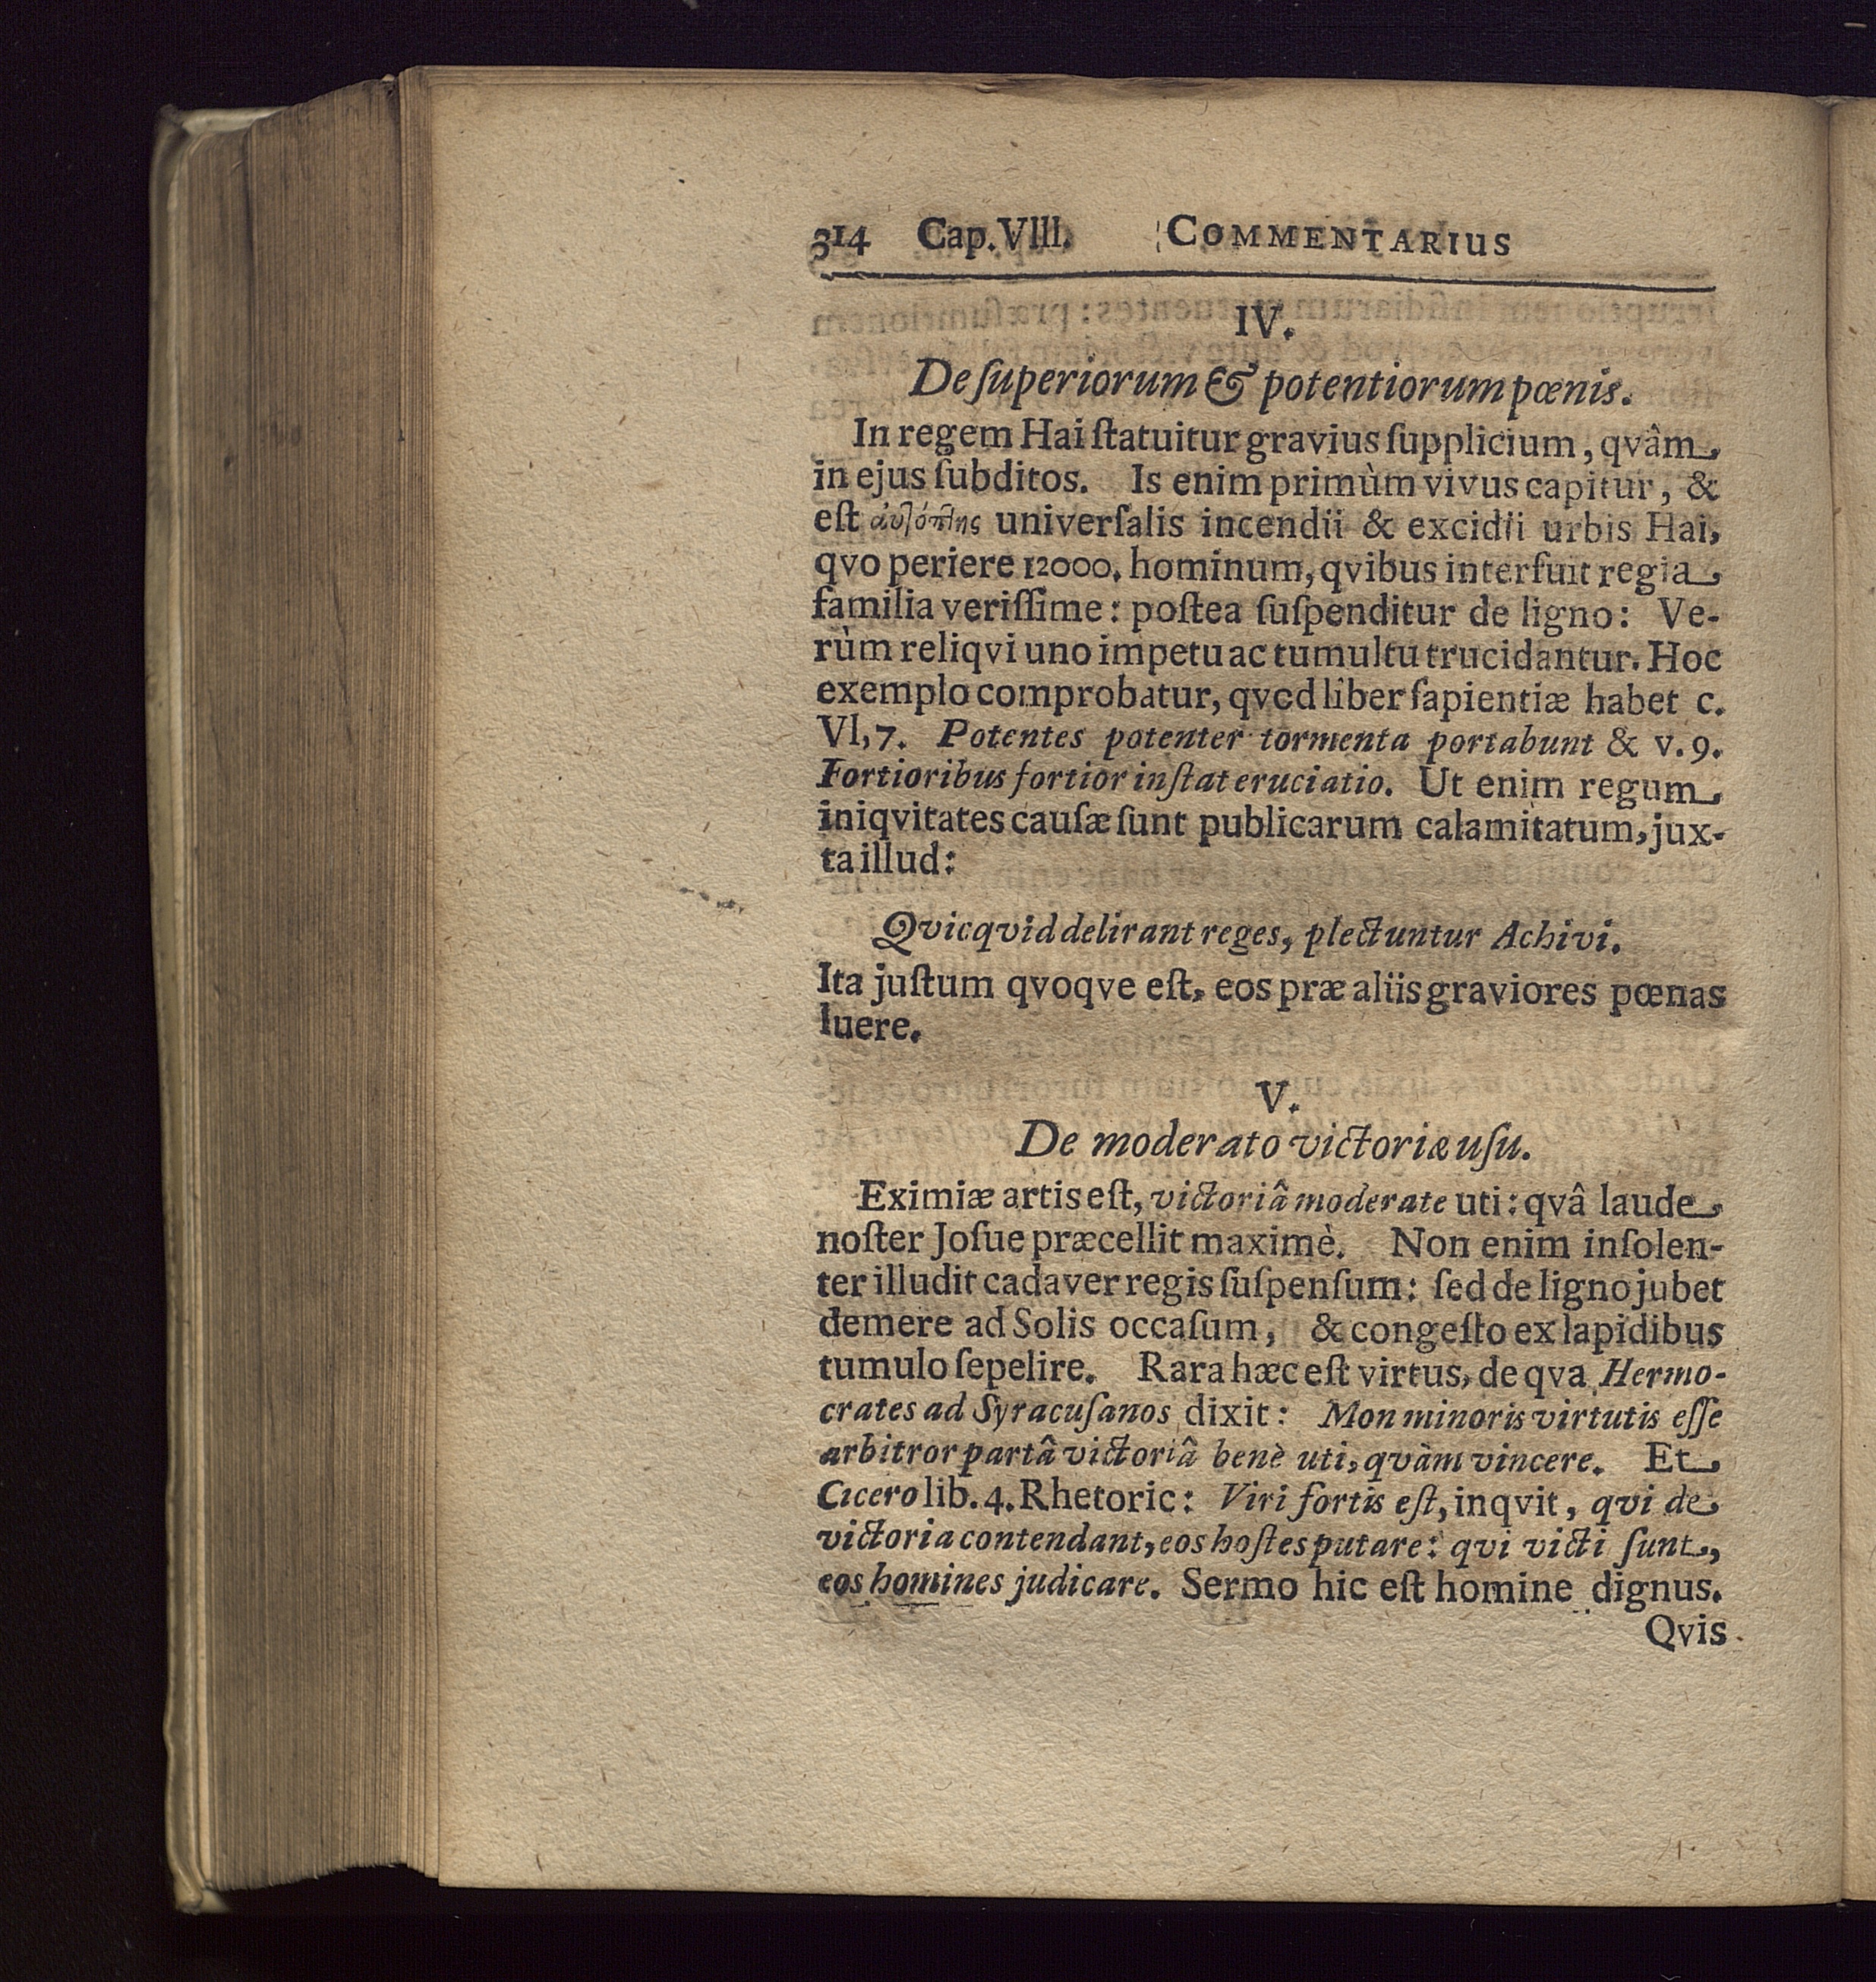 314 Cap. VIII. COMMENTARIUS
IV.
De ſuperiorum & potentiorum pœnis.
In regem Hai ſtatuitur gravius ſupplicium, qvâm
in ejus ſubditos. Is enim primùm vivus capitur, &
eſt ἀυτόπτης univerſalis incendii & excidii urbis Hai,
qvo periere 12000. hominum, qvibus interfuit regia
familia veriſſime: poſtea ſuſpenditur de ligno: Ve-
rùm reliqvi uno impetu ac tumultu trucidantur. Hoc
exemplo comprobatur, qvod liber ſapientiæ habet c.
VI, 7. Potentes potenter tormenta portabunt & v. 9.
Fortioribus fortior inſtat eruciatio. Ut enim regum
iniqvitates cauſæ ſunt publicarum calamitatum, jux-
ta illud:
Qvicqvid delirant reges, plectuntur Achivi.
Ita juſtum qvoqve eſt, eos præ aliis graviores pœnas
luere.
V.
De moderato victoriæ uſu.
Eximiæ artis eſt, victoriâ moderate uti: qvâ laude
noſter Joſue præcellit maximè. Non enim inſolen-
ter illudit cadaver regis ſuſpenſum: ſed de ligno jubet
demere ad Solis occaſum, & congeſto ex lapidibus
tumulo ſepelire. Rara hæc eſt virtus, de qva Hermo-
crates ad Syracuſanos dixit: Mon minoris virtutis eſſe
arbitror partâ victoriâ benè uti, qvàm vincere. Et
Cicero lib. 4. Rhetoric: Viri fortis eſt, inqvit, qvi de
victoria contendant, eos hoſtes putare: qvi victi ſunt,
eos homines judicare. Sermo hic eſt homine dignus.
Qvis